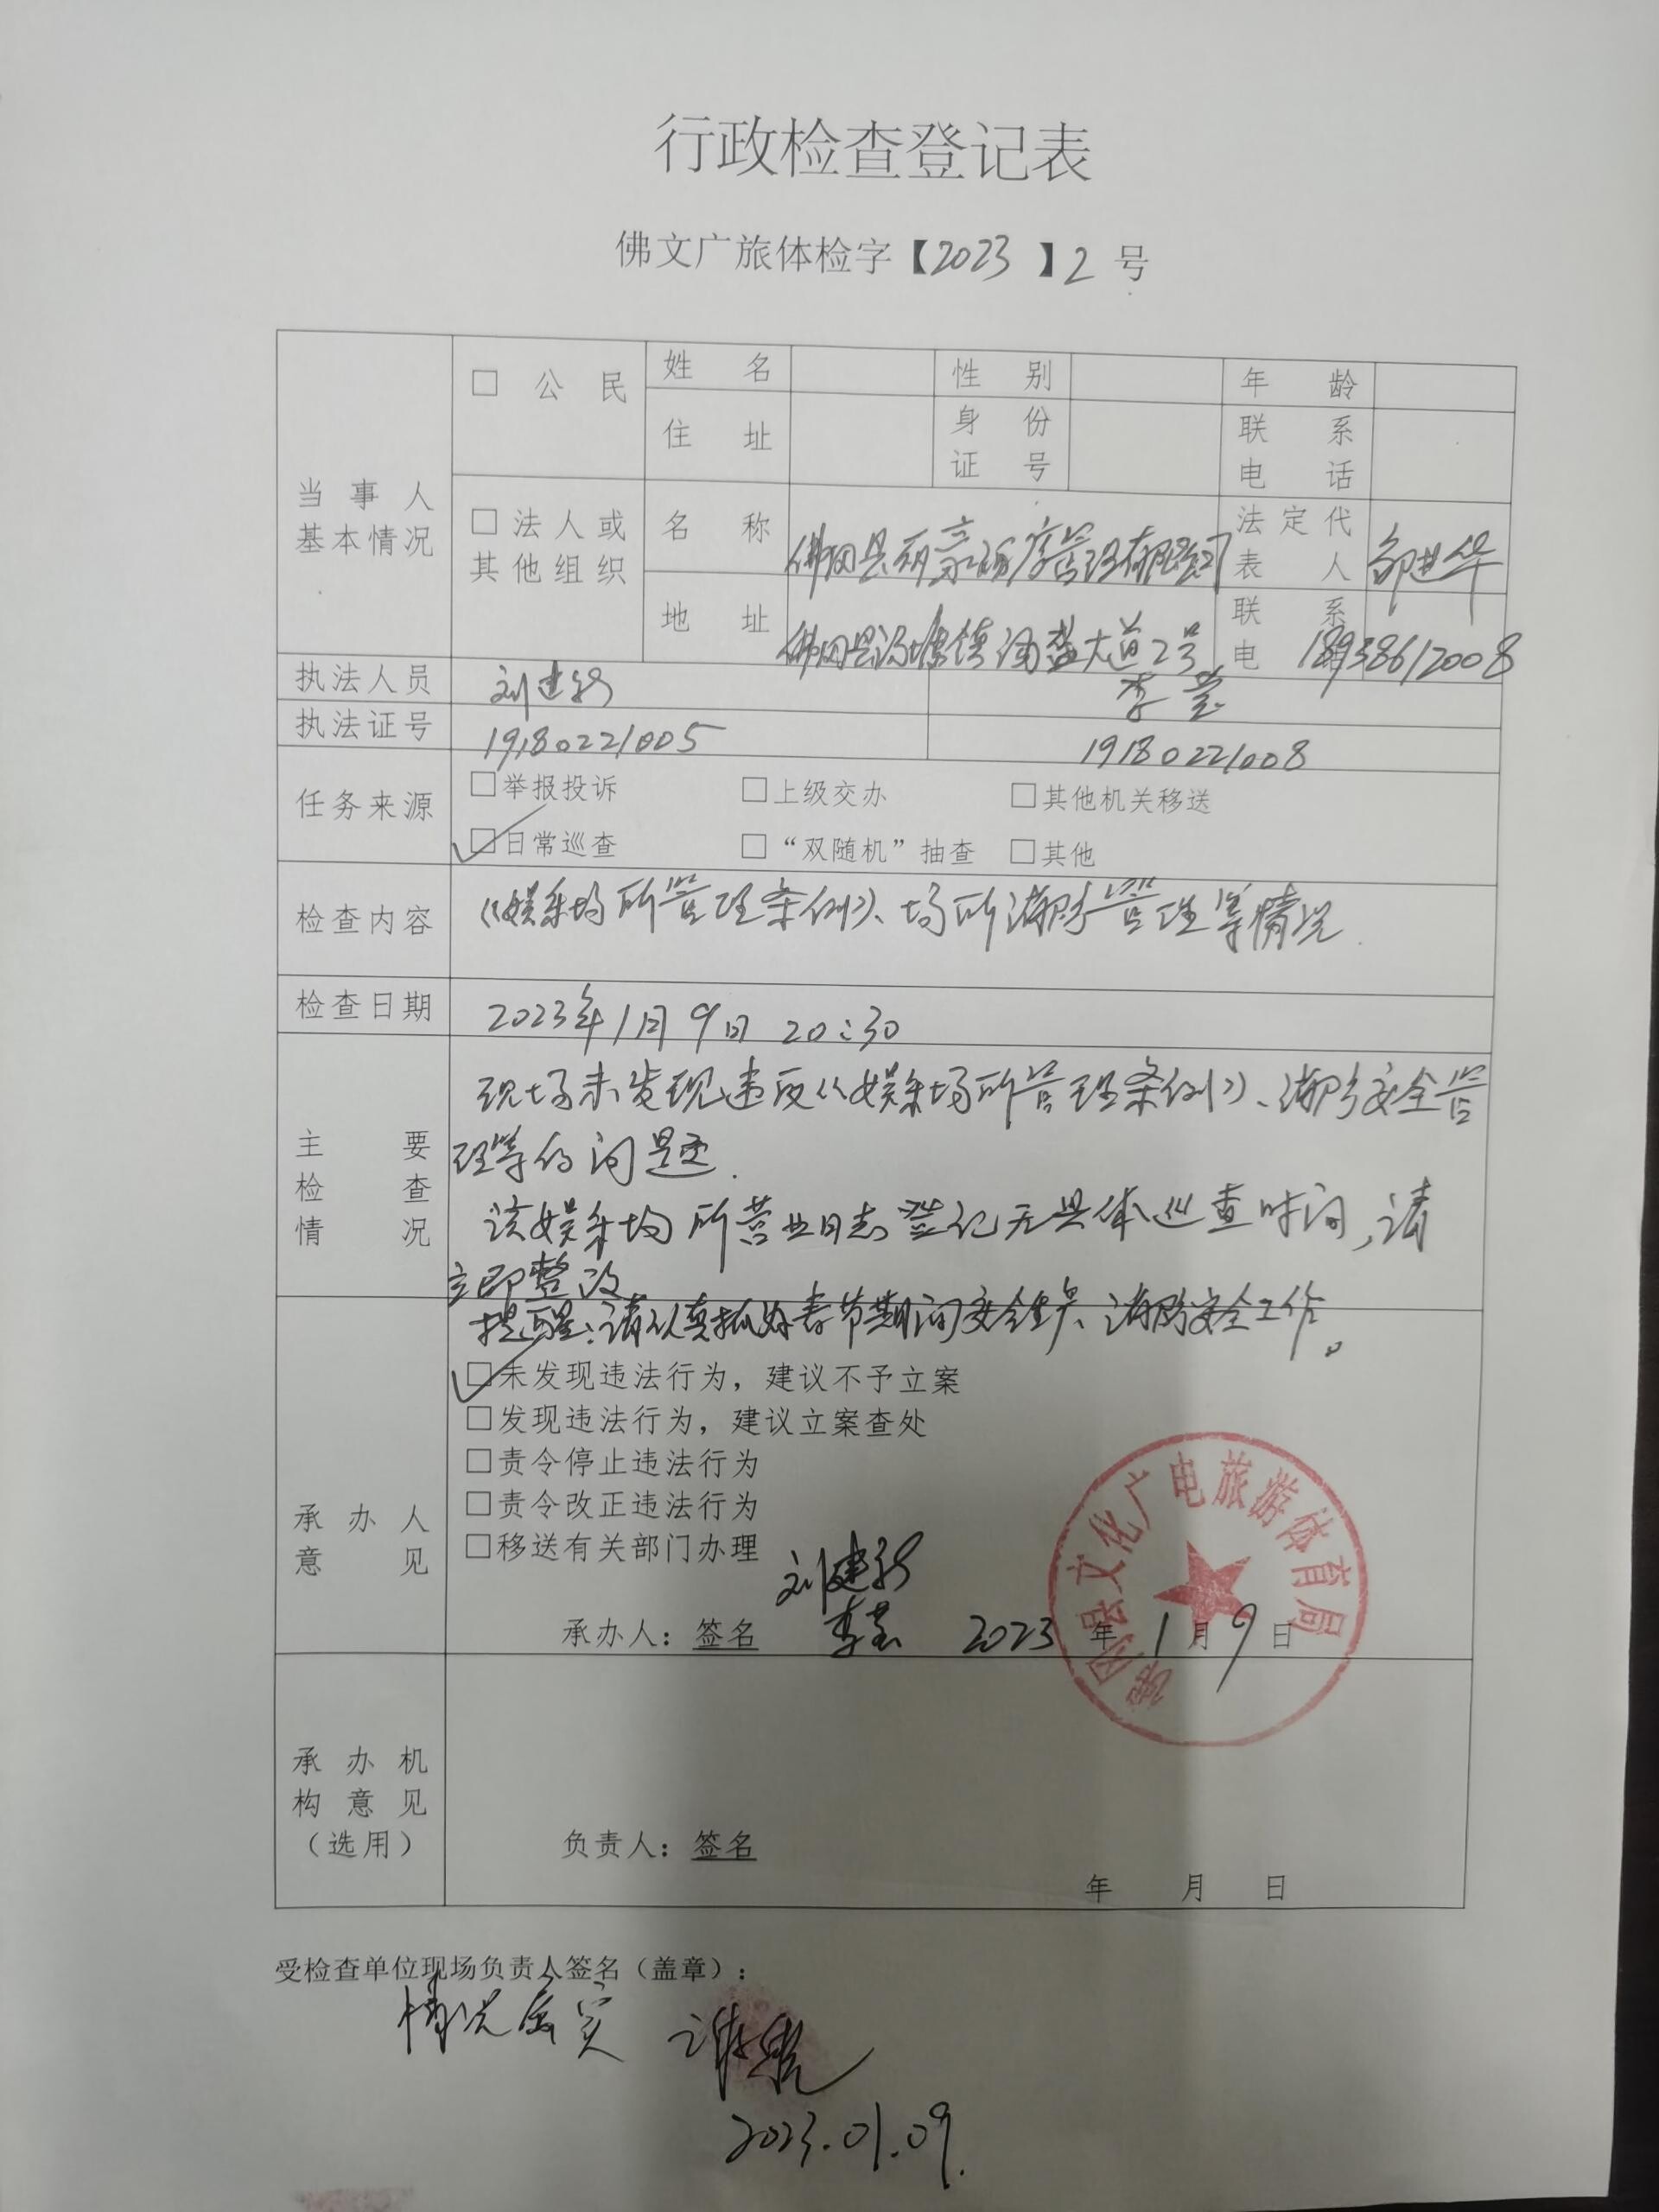 行政检查登记表
佛文广旅体检字【2023】2号
当事人基本情况
□ 公民
姓名
性别
年龄
住址
身份证号
联系电话
□法人或其他组织
名称
佛冈县 有限公司
法定代表人
地址
佛冈县汤塘镇 大道2号
联系电
18938612008
执法人员
刘建
李
执法证号
19180221005
19180221008
任务来源
□举报投诉 □上级交办 □其他机关移送
☑日常巡查 □“双随机”抽查 □其他
检查内容
《娱乐场所管理条例》、场所消防管理等情况.
检查日期
2023年1月9日 20:30
主要检查情况
现场未发现违反《娱乐场所管理条例》、消防安全管
理等的问题.
该娱乐场所营业日志登记无具体巡查时间,请
立即整改
提醒:请认真抓好春节期间安全生产、消防安全工作。
承办人意见
☑未发现违法行为，建议不予立案
□发现违法行为，建议立案查处
□责令停止违法行为
□责令改正违法行为
□移送有关部门办理
刘建
承办人：签名 李 2023年1月9日
佛冈县文化广电旅游体育局
承办机构意见（选用）
负责人：签名
年 月 日
受检查单位现场负责人签名（盖章）：
情况属实
2023.01.09.